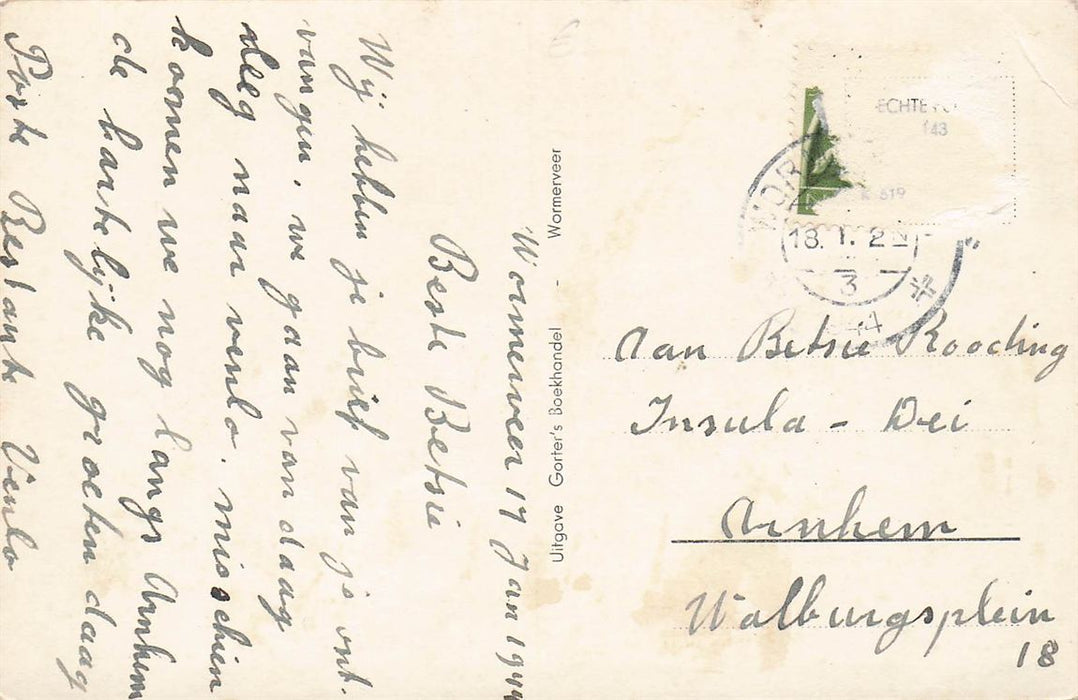 Wormerveer 17 Jan 1944
Beste Betsie
Wij hebben je brief van je ont.
vangen. we gaan van daag
weg naar venlo. misschien
komen we nog langs Arnhem
de hartelijke groeten daag
Poste Restante Venlo
Uitgave Gorter's Boekhandel - Wormerveer
ECHTE FO
143
K 619
WOR
18.1. 2 N
3
1944
Aan Betsie Rooding
Insula - Dei
Arnhem
Walburgsplein
18